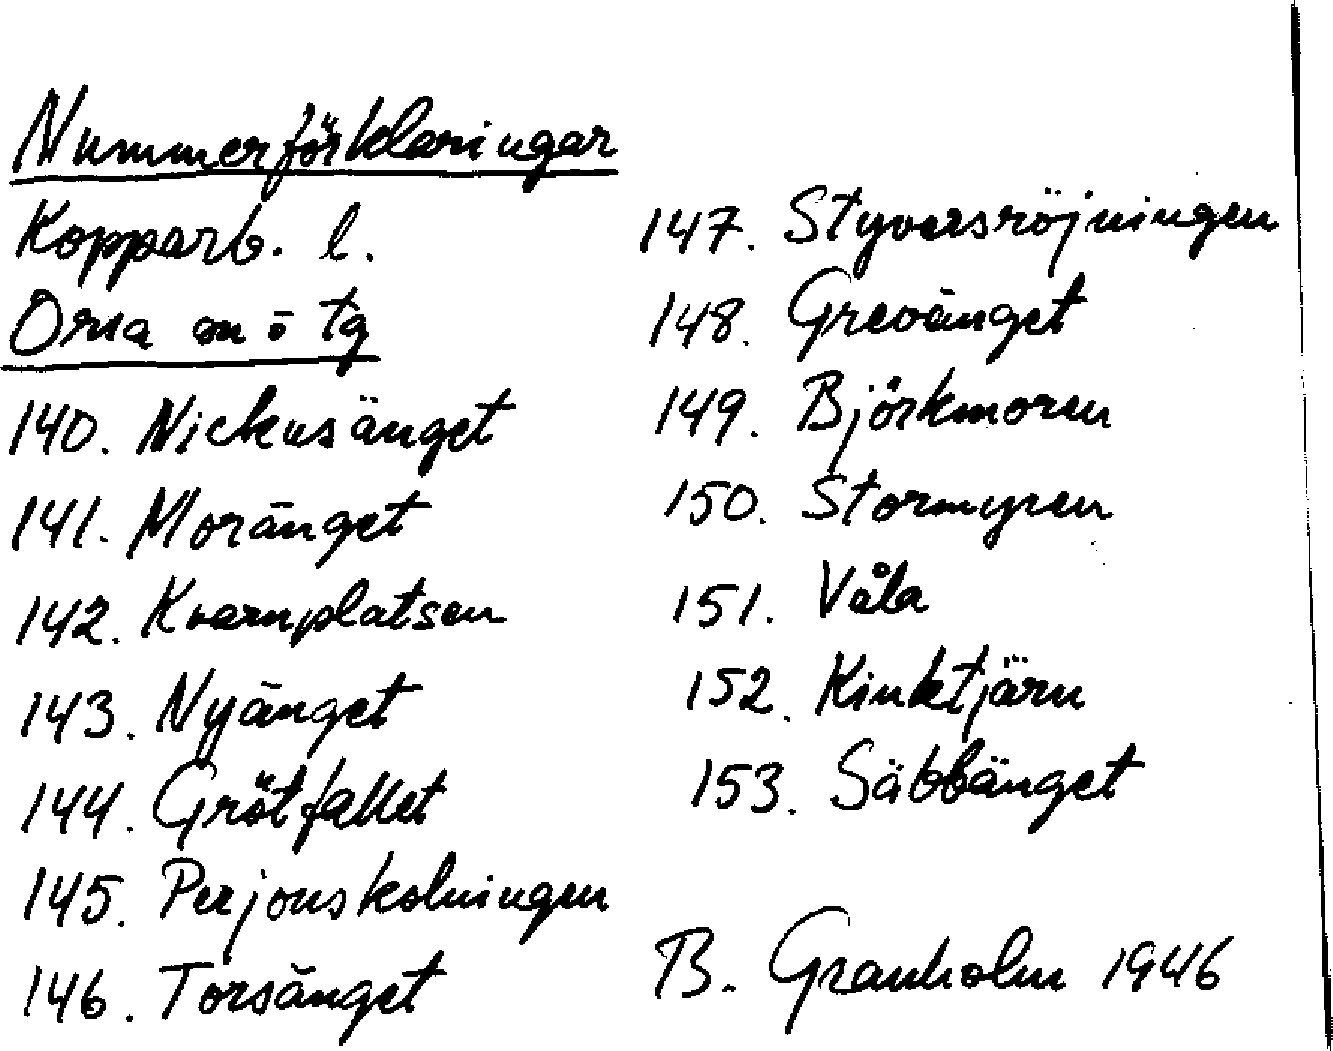 Nummerförklaringar
Kopparb. l.
Orsa sn ö tg
140. Nickusänget
141. Moränget
142. Kvarnplatsen
143. Nyänget
144. Grötfallet
145. Perjonskolningen
146. Torsänget
147. Styversröjningen
148. Grevänget
149. Björkmoren
150. Stormyren
151. Våla
152. Kinktjärn
153. Säbbänget
B. Granholm 1946